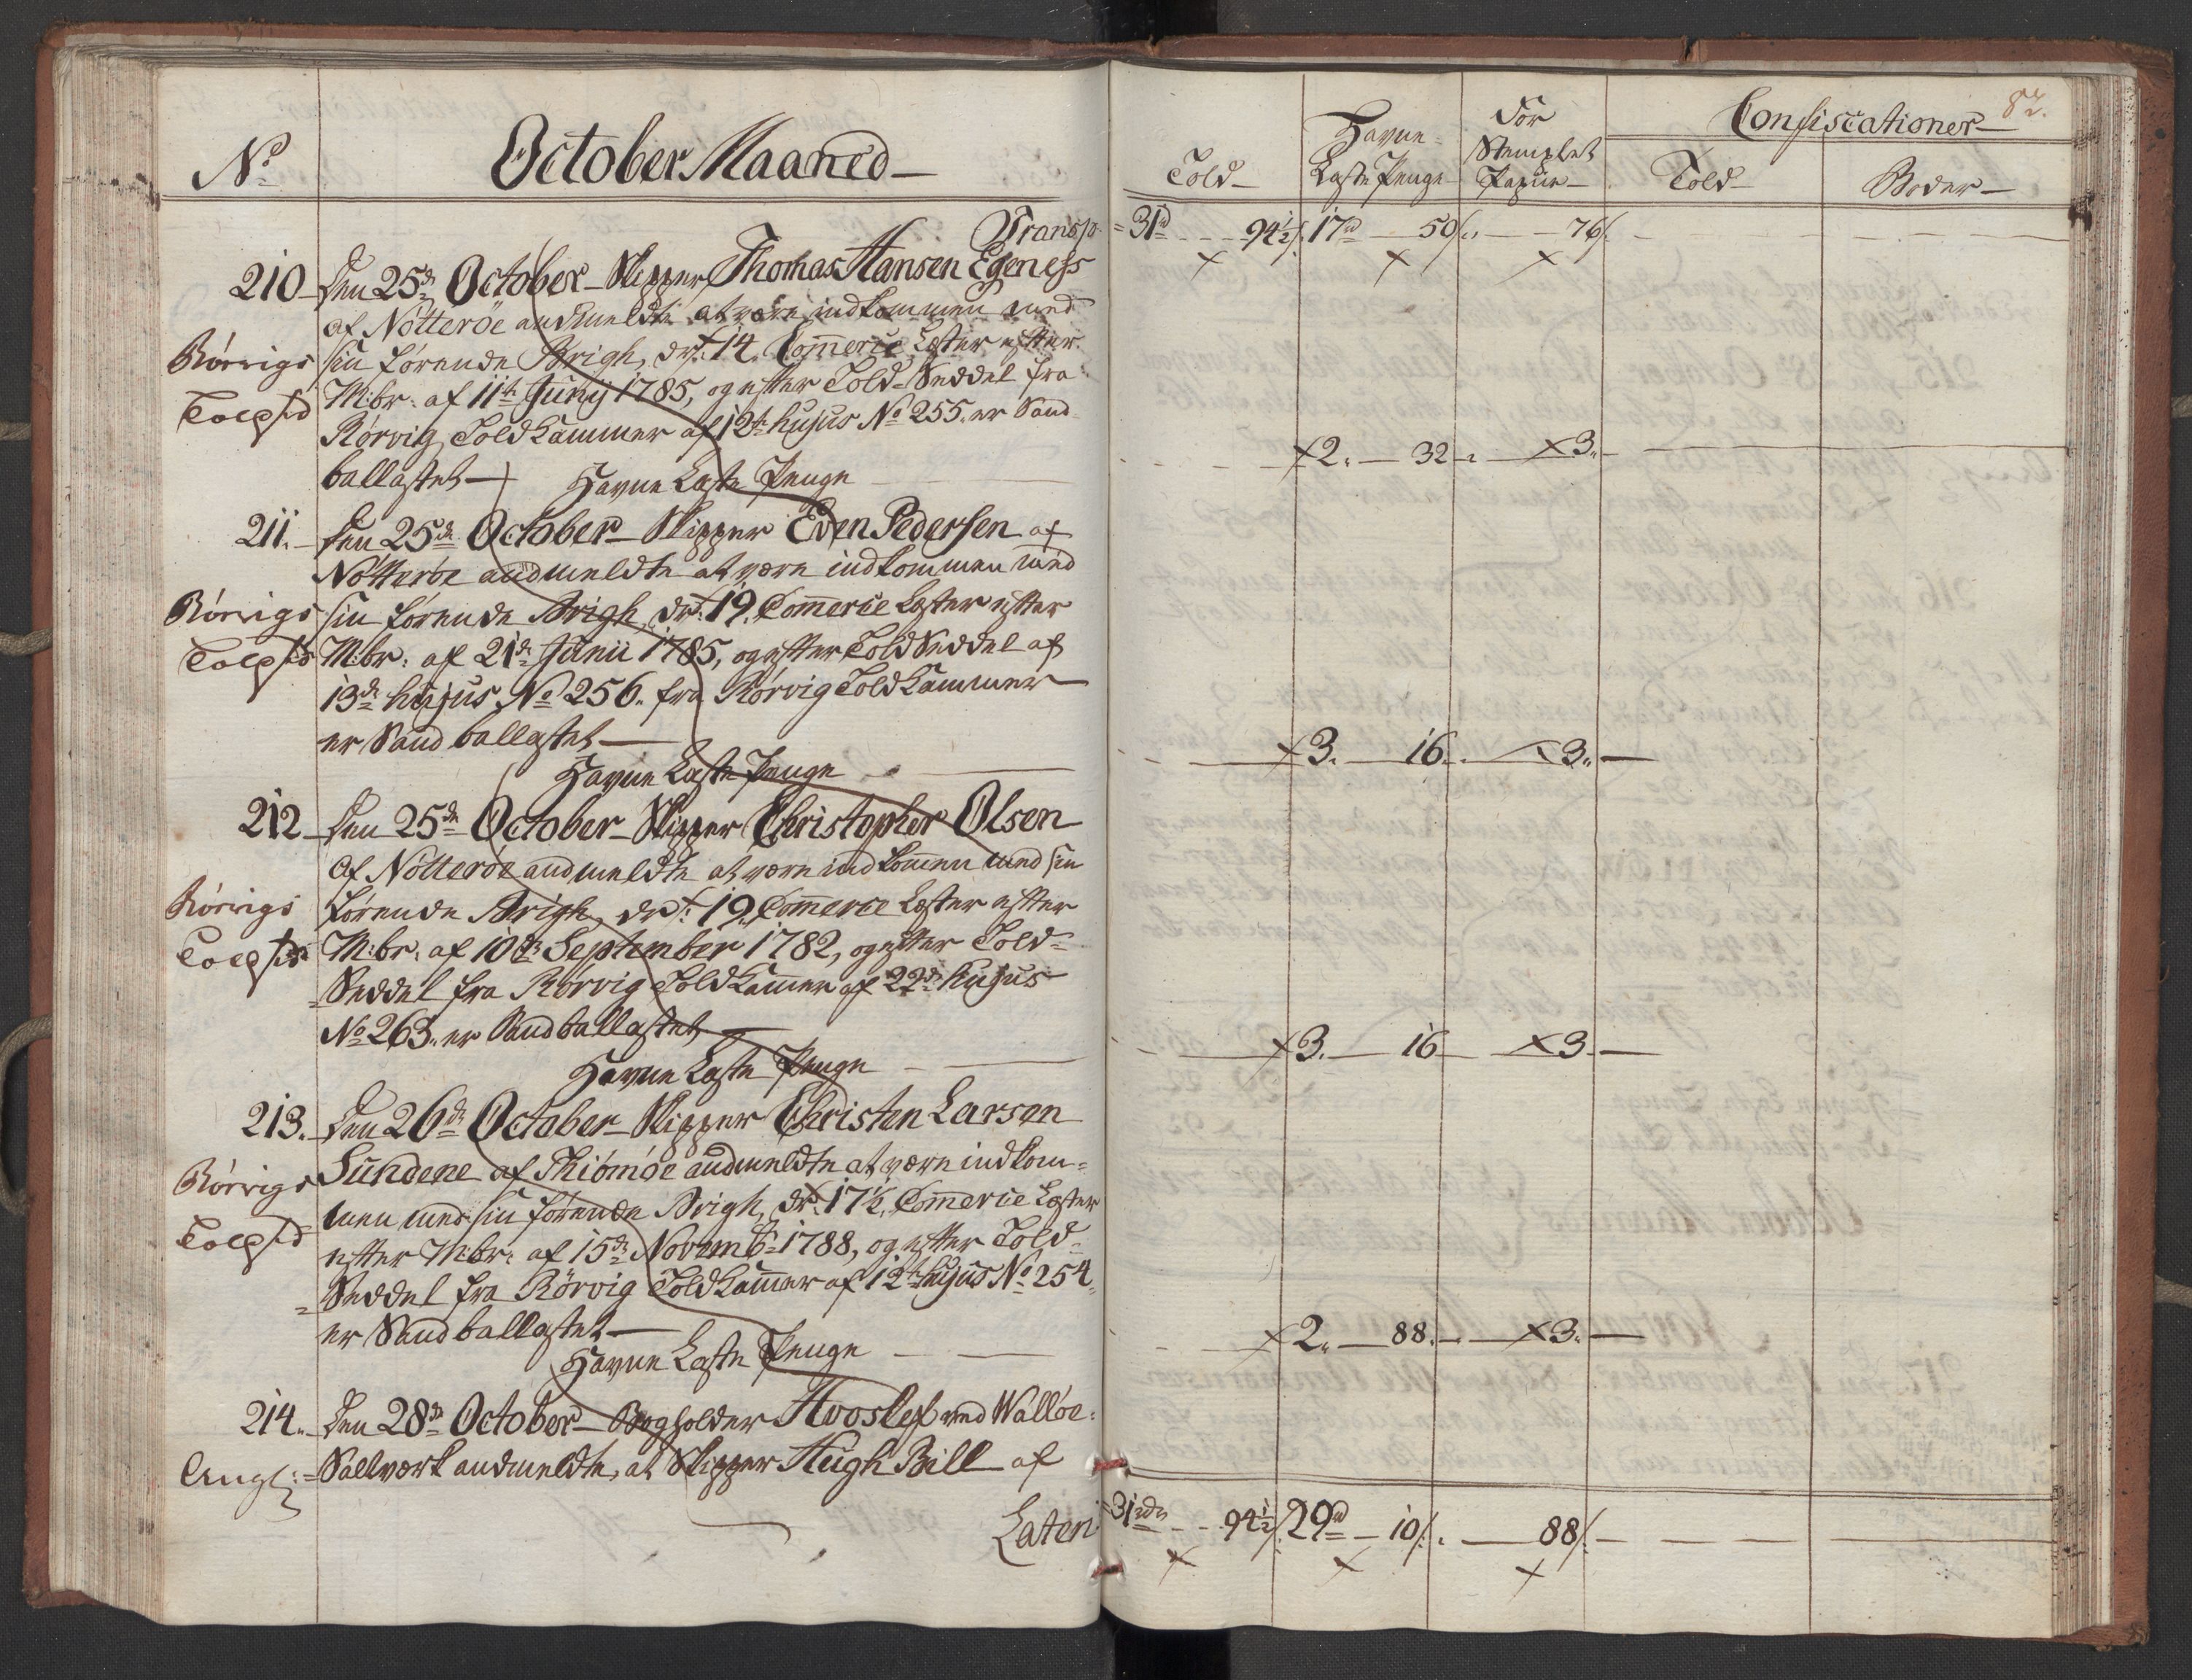 No
October Maaned
Transp.
210 Den 25de October Skipper Thomas Hansen Egeness
af Nötteröe andmeldte at være indkommen med
Rörvigs
Toldsed
sin förende Brigh, dr: 14 Commerce Læster efter
M:br: af 11te Junij 1785, og efter Told-Seddel fra
Rörvig Told Kammer af 12te hujus No 255. er Sand-
ballastet
Havne Læste Penge
211. Den 25de October Skipper Even Pedersen af
Nötteröe andmeldte at være indkommen med
Rörvigs
Toldsed
sin förende Brigh, dr: 19. Commerce Læster efter
M:br: af 21de Junii 1785, og efter Told Seddel af
13de hujus No 256. fra Rörvig Told Kammer
er Sand ballastet
Havne Læste Penge
212 Den 25de October Skipper Christopher Olsen
af Nötteröe andmeldte at være indkommen med sin
Rörvigs
Toldsed
förende Brigh, dr: 19. Commerce Læster efter
M:br: af 10de September 1782, og efter Told-
Seddel fra Rörvig Told Kammer af 22de hujus
No 263. er Sand ballastet
Havne Læste Penge
213. Den 26de October Skipper Christen Larsen
Sundene af Thiömöe andmeldte at være indkom-
Rörvigs
Toldsed
men med sin förende Brigh, dr: 17½. Commerce Læster
efter M:br: af 15de Novemb: 1788, og efter Told-
Seddel fra Rörvig Told Kammer af 12te hujus No 254
er Sand ballastet
Havne Læste Penge
214. Den 28de October Bogholder Hvoslef ved Walløe
Angl:
Saltværk andmeldte, at Skipper Hugh Bill af
Lateri
82.
Told
Havne-
Læste Penge
For
Stemplet
Papiir
Confiscationer
Told
Böder
31rd 94½s. 17rd 50s. 76s.
2. 32 3.
3. 16. 3.
3. 16 3.
2. 88. 3.
31rd 94½s. 29rd 10s. 88s.